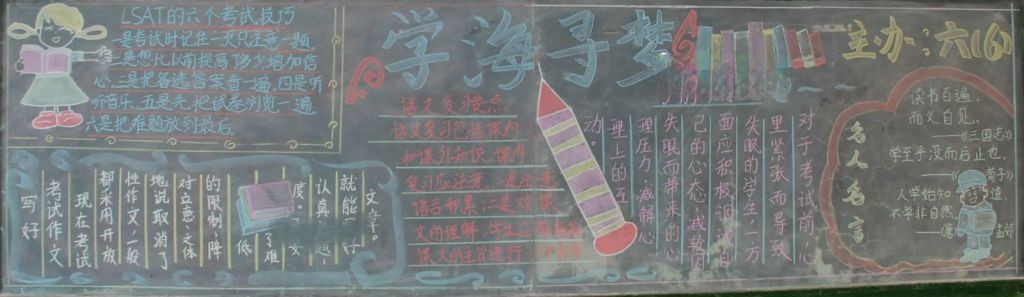 LSAT的六个考试技巧
一是考试时记住一次只注意一题、
二是想比以前提高了多少增加信
心、三是把备选答案看一遍、四是听
听音乐、五是先把试卷浏览一遍
六是把难题放到最后。
学海寻梦
主办:六(6)
语文复习要点
语文复习包括课内
和课外知识 课内
复习应注意
语言积累、二是对课
文的理解
课文的主旨进行
写好
考试作文
现在考试
都采用开放
性作文,一般
地说取消了
对立意、文体
的限制,降
低
了难
度
认真
就能
好
文章。
对于考试前,心
里紧张而导致
失眠的学生一方
面应积极调
己的心态,减
失眠而带来的心
理压力,减
理上的
动。
名人名言
读书百遍,
而义自见。
——《三国志》
学至乎没而后止也。
——《荀子》
人学始知道,
不学非自然。